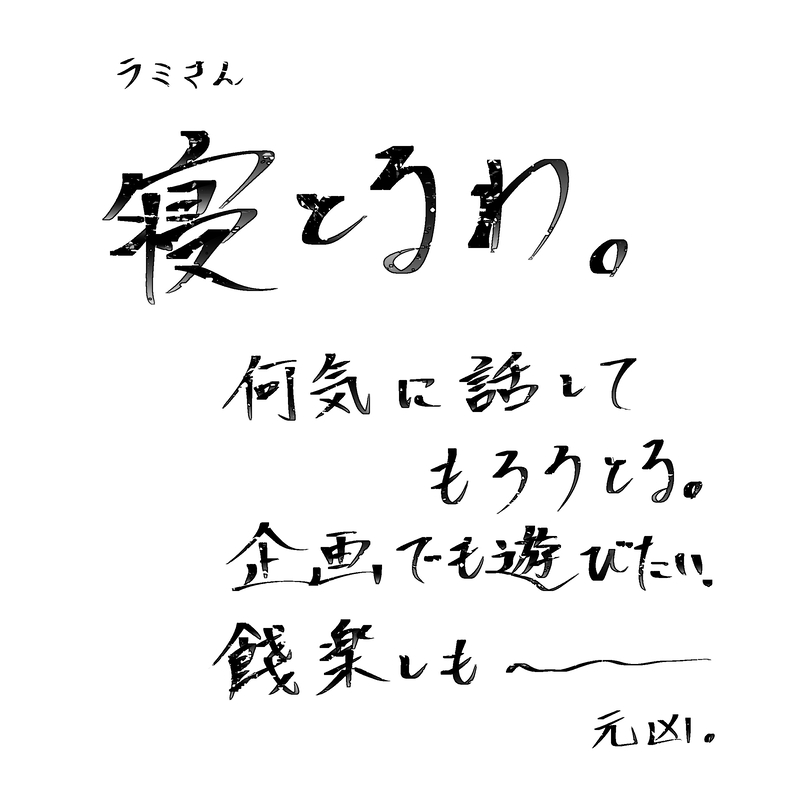 ラミさん
寝とるわ。
何気に話して
もろうとる。
企画でも遊びたい。
餞楽しも〜
元凶。